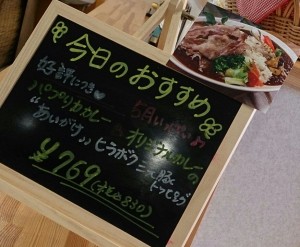 今日のおすすめ
好評につき 5月いっぱい
パプリカカレー & オリジナルカレーの
"あいがけ" ヒラボク三元豚
トッピング
¥769(税込830)